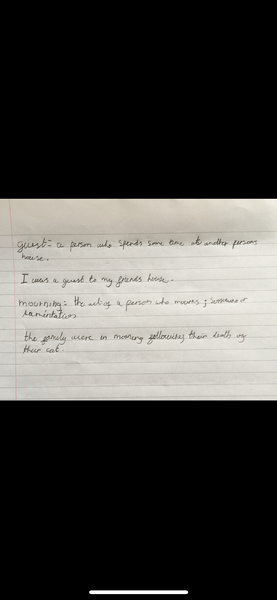 guest= a person who spends some time at another persons
house.
I was a guest to my friends house.
mourning= the act of a person who mourns ; sorrow or
lamentation
the family were in morning following their death of
their cat.